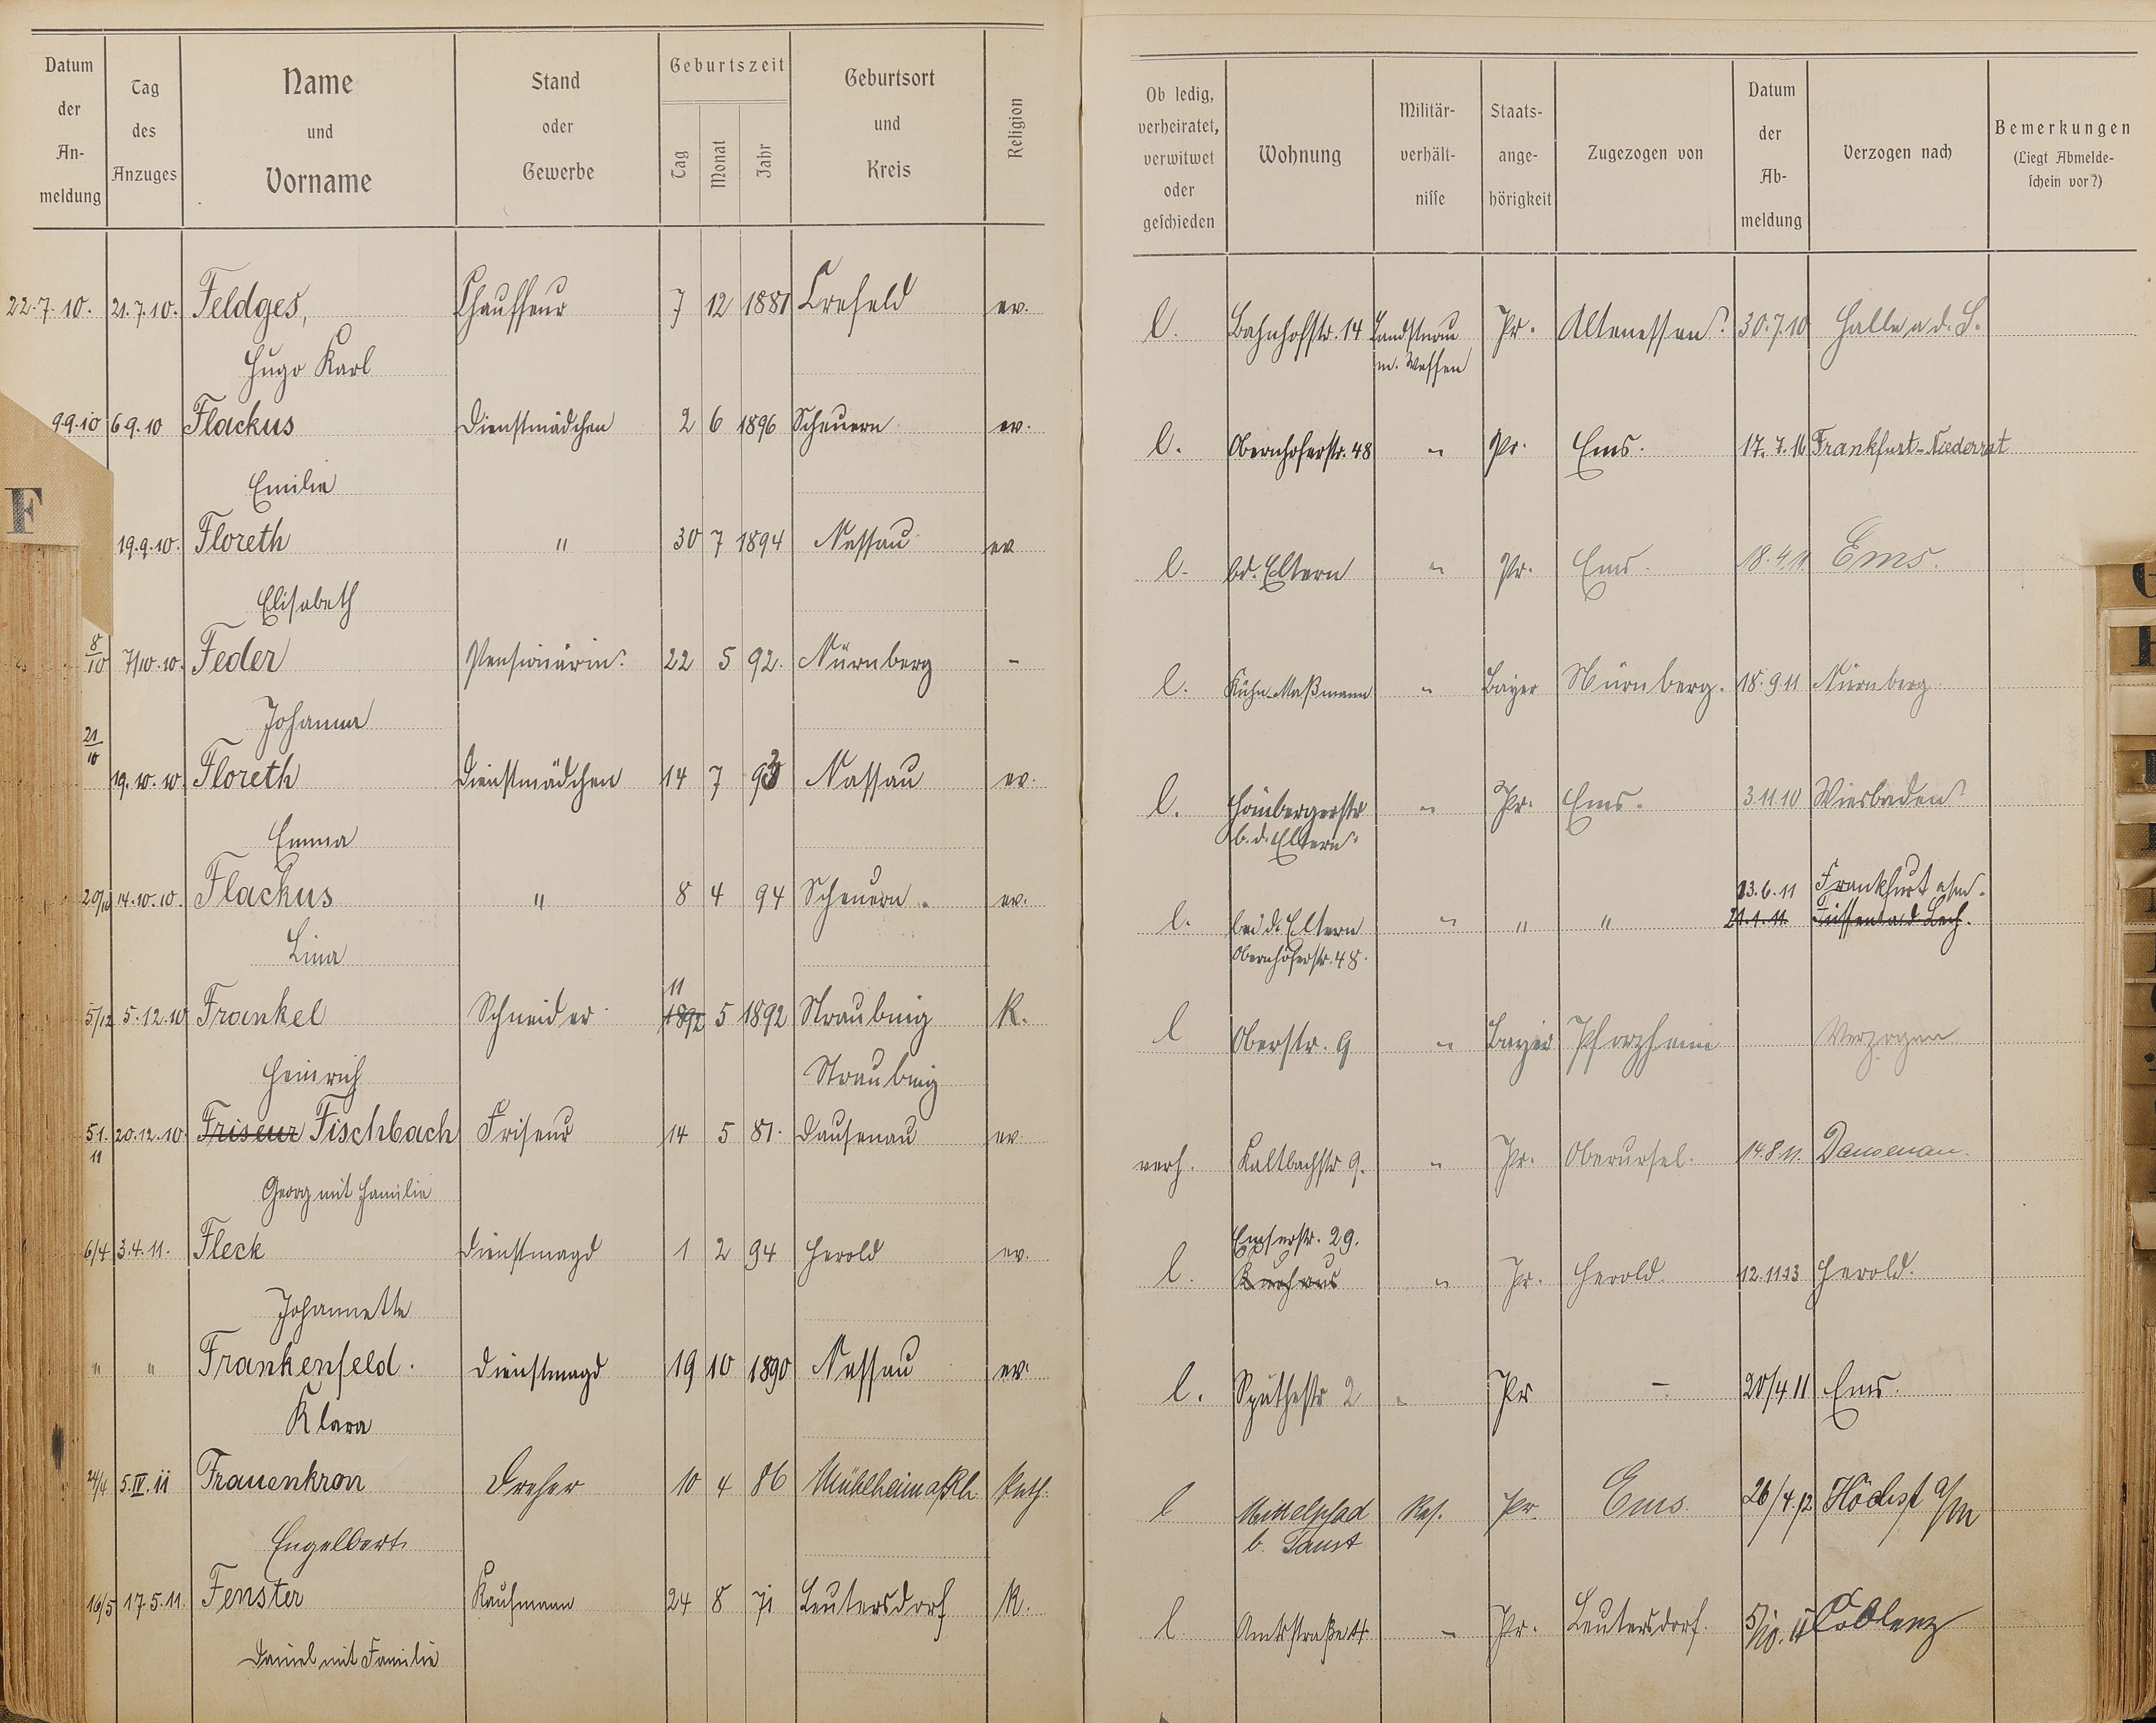 Datum der An- meldung
Tag des Anzuges
Name und Vorname
Stand oder Gewerbe
Geburtszeit
Tag Monat Jahr
Geburtsort und Kreis
Religion
Ob ledig, verheiratet, verwitwet oder geschieden
Wohnung
Militär- verhält- nisse
Staats- ange- hörigkeit
Zugezogen von
Datum der Ab- meldung
Verzogen nach
Bemerkungen (Liegt Abmelde- schein vor?)
22.7.10. 21.7.10. Feldges, Chauffeur 7 12 1881 Crefeld ev. l. Bahnhofstr. 14 Landsturm Pr. Altenessen. 30.7.10 Halle a d. S.
Hugo Karl m. Waffen
9.9.10 6.9.10 Flackus Dienstmädchen 2 6 1896 Scheuern ev. l. Obernhoferstr. 48 " Pr. Ems. 17.7.16 Frankfurt-Niederrat
Emilie
F
19.9.10. Floreth " 30 7 1894 Nassau ev l. bd. Eltern " Pr. Ems. 18.4.11 Ems.
Elisabeth
8/10 7/10.10. Feder Pensionärin. 22 5 92. Nürnberg - l. Kühn-Maßmann " Bayer Nürnberg. 18.9.11 Nürnberg
Johanna
21/10 19.10.10. Floreth Dienstmädchen 14 7 93 Nassau ev. l. Hömbergerstr " Pr. Ems. 3.11.10 Wiesbaden
Emma b. d. Eltern.
23.6.11 Frankfurt a/m.
20/10 14.10.10. Flackus " 8 4 94 Scheuern. ev. l. bei d. Eltern " " " 21.1.11. Füssen a. d. Lech.
Lina Obernhoferstr. 48.
11
5/12 5.12.10 Frankel Schneider 1892 5 1892 Straubing K. l Oberstr. 9 " Bayer Pforzheim Verzogen
Heinrich Straubing
5.1. 11 20.12.10. Friseur Fischbach Friseur 14 5 81. Dausenau ev verh. Kaltbachstr 9. " Pr. Oberursel. 14.8.11. Dausenau.
Georg mit Familie
Emserstr. 29.
6/4 3.4.11. Fleck Dienstmagd 1 2 94 Herold ev. l. Kurhaus " Pr. Herold. 12.11.13 Herold.
Johannette
" " Frankenfeld. Dienstmagd 19 10 1890 Nassau ev. l. Späthestr 2 " Pr - 20/4 11 Ems.
Klara
24/4 5.IV.11 Frauenkron Dreher 10 4 86 Mühlheim a/Rh. Kath. l Mittelpfad Res. Pr. Ems. 26/4.12 Höchst a/M
Engelbert. b. Faust
16/5 17.5.11. Fenster Kaufmann 24 8 71 Leutersdorf K. l. Amtsstraße 4. " Pr. Leutersdorf. 5/10.11 Coblenz
Daniel mit Familie